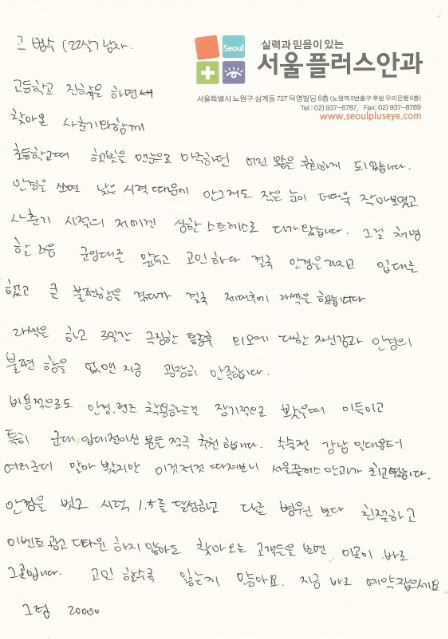 고 범수 (22살) 남자.
Seoul
실력과 믿음이 있는
서울플러스안과
서울특별시 노원구 상계동 727 덕영빌딩 6층 (노원역 9번출구 후방 우리은행 6층)
Tel : 02) 937-8787, Fax: 02) 937-8789
www.seoulpluseye.com
고등학교 진학을 하면서
찾아온 사춘기와 함께
초등학교때 햇빛을 맨눈으로 마주하던 어린 왕은 후회하게 되었습니다.
안경을 쓰면 낮은 시력 때문에 안그래도 작은 눈이 더더욱 작아보였고
사춘기 시절의 저에겐 상한 스트레스로 다가왔습니다. 그걸
한 그음 군입대를 앞두고 고민하다 결국 안경을 가지고 입대를
했고 큰 불편함을 겪다가 결국 제대후에 라섹을 했습니다
라섹을 하고 3일간 극징한 후 미모에 대한 자신감과 안경의
불편 함을 없앤 지금 굉장히 만족합니다.
비용적으로도 안경, 렌즈 착용하는걸 장기적으로 봤을때 이득이고
특히 군대 입대전이신 분들 적극 추천 합니다. 수술전 강남 밝은
여러군데 알아 봤지만 이것저것 따져보니 서울플러스 안과가 최고였습니다.
안경을 벗고 시력 1.5를 달성하고 다른 병원 보다 친절하고
이벤트 광고 다타운 하지 않아도 찾아오는 고객들을 보면 이곳이 바로
그곳입니다. 고민 할수록 잃는게 많아요. 지금 바로 예약 잡으세요
그럼 20000